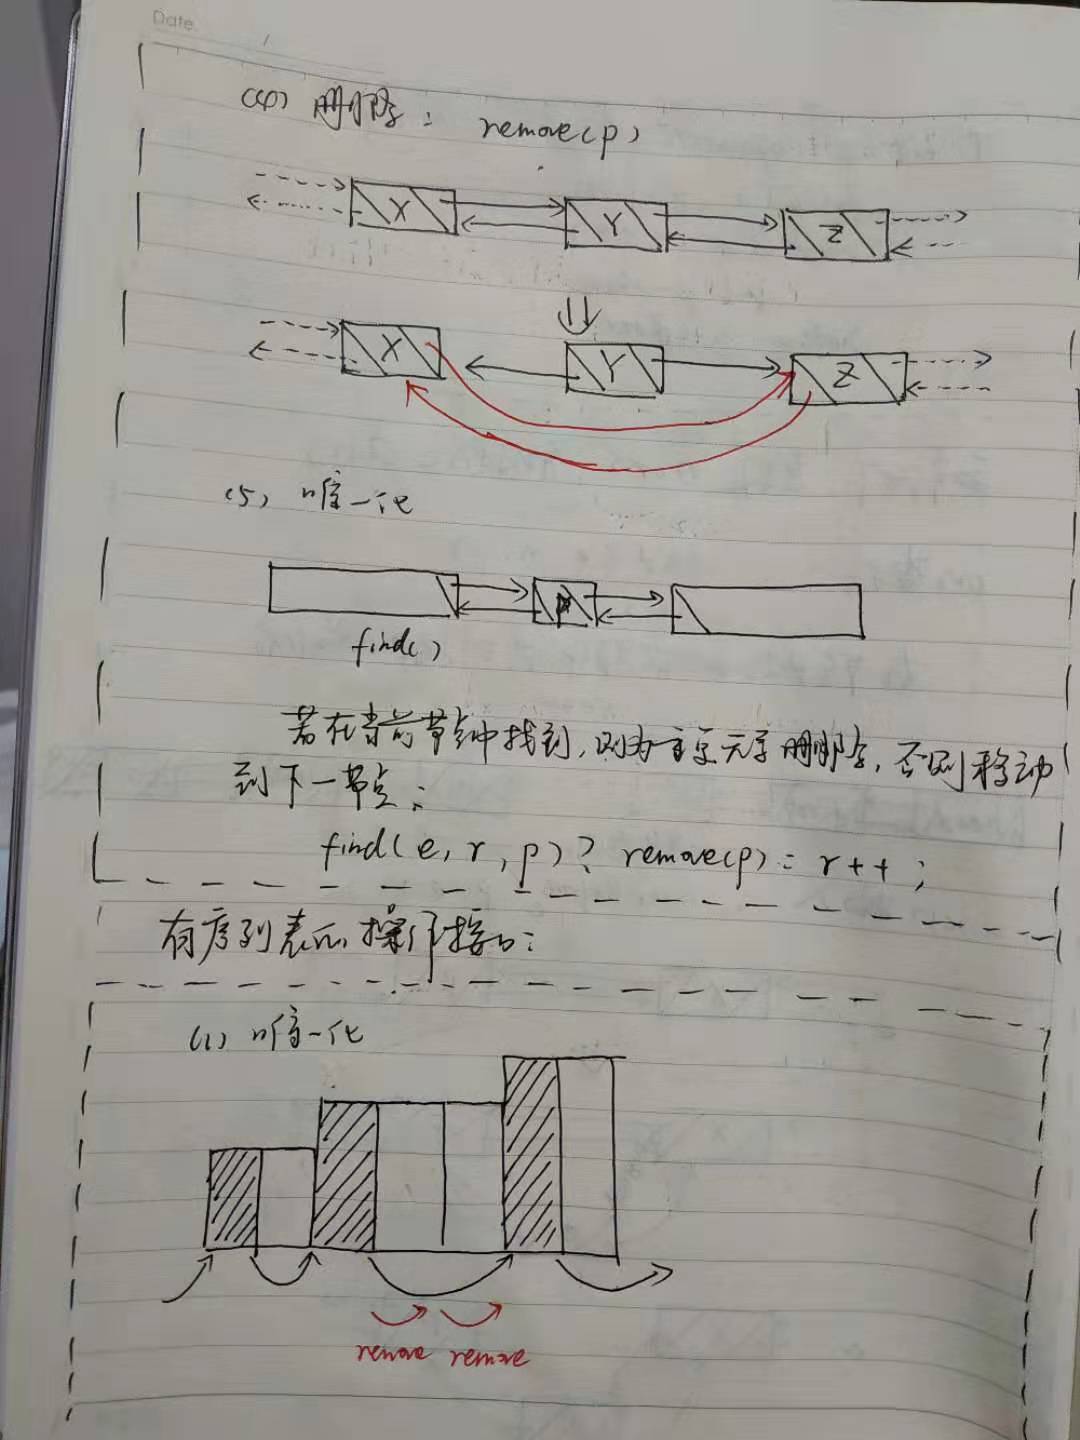 Date.
(4) 删除: remove(p)
X Y Z
X Y Z
(5) 唯一化
p
find()
若在当前节点中找到,则为重复元素删除,否则移动
到下一节点:
find(e, r, p)? remove(p): r++;
有序列表的操作接口:
(1) 唯一化
remove remove